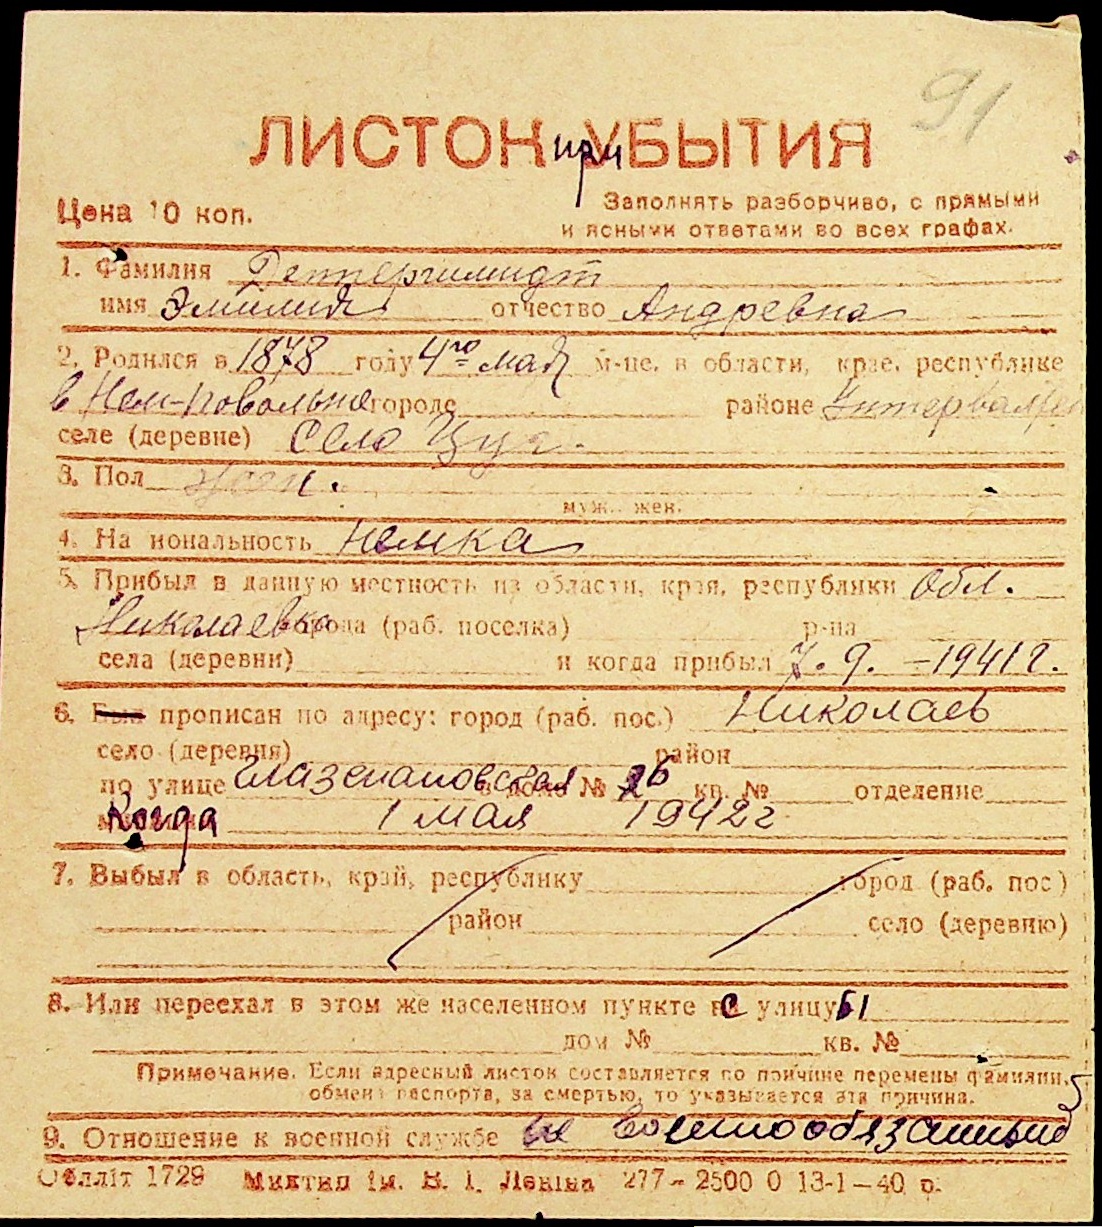 91
ЛИСТОК при УБЫТИЯ
Цена 10 коп.
Заполнять разборчиво, с прямыми
и ясными ответами во всех графах.
1. Фамилия
имя Эмилия отчество Андревна
2. Родился в 1878 году 4го мая м-це, в области, крае, республике
в городе районе
селе (деревне) село Цуг.
3. Пол жен.
муж. жен.
4. На иональность немка
5. Прибыл в данную местность из области, края, республики обл.
Николаевка города (раб. поселка) р-на
села (деревни) и когда прибыл 7.9.-1941г.
6. Был прописан по адресу: город (раб. пос.) Николаев
село (деревня) район
по улице Глазенаповская в доме № 26 кв. № отделение
Когда 1 мая 1942г
7. Выбыл в область, край, республику город (раб. пос)
район село (деревню)
8. Или переехал в этом же населенном пункте с улицы
дом № кв. №
Примечание. Если адресный листок составляется по причине перемены фамилии,
обмена паспорта, за смертью, то указывается эта причина.
9. Отношение к военной службе не военнообязанный
Облліт 1729 ім. В. І. Леніна 277-2500 0 13-1-40 р.